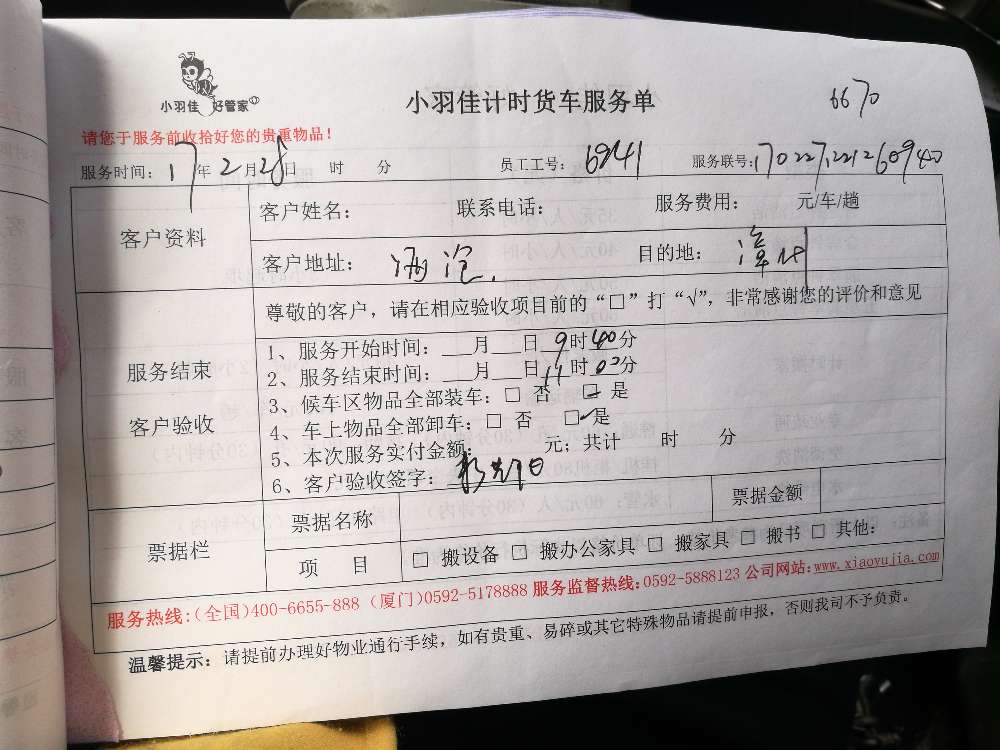 小羽佳 好管家
小羽佳计时货车服务单
6670
请您于服务前收拾好您的贵重物品！
服务时间：17年2月28日 时 分 员工工号：6941 服务联号：
客户资料
客户姓名： 联系电话： 服务费用： 元/车/趟
客户地址： 目的地：漳州
服务结束
客户验收
尊敬的客户，请在相应验收项目前的“□”打“√”，非常感谢您的评价和意见
1、服务开始时间：___月___日 9时40分
2、服务结束时间：___月___日11时02分
3、候车区物品全部装车：□ 否 ☑ 是
4、车上物品全部卸车：□ 否 ☑是
5、本次服务实付金额： 元；共计 时 分
6、客户验收签字：
票据栏
票据名称 票据金额
项 目 □ 搬设备 □ 搬办公家具 □ 搬家具 □ 搬书 □ 其他：
服务热线：(全国)400-6655-888 (厦门)0592-5178888 服务监督热线：0592-5888123 公司网站：www.xiaoyujia.com
温馨提示：请提前办理好物业通行手续，如有贵重、易碎或其它特殊物品请提前申报，否则我司不予负责。